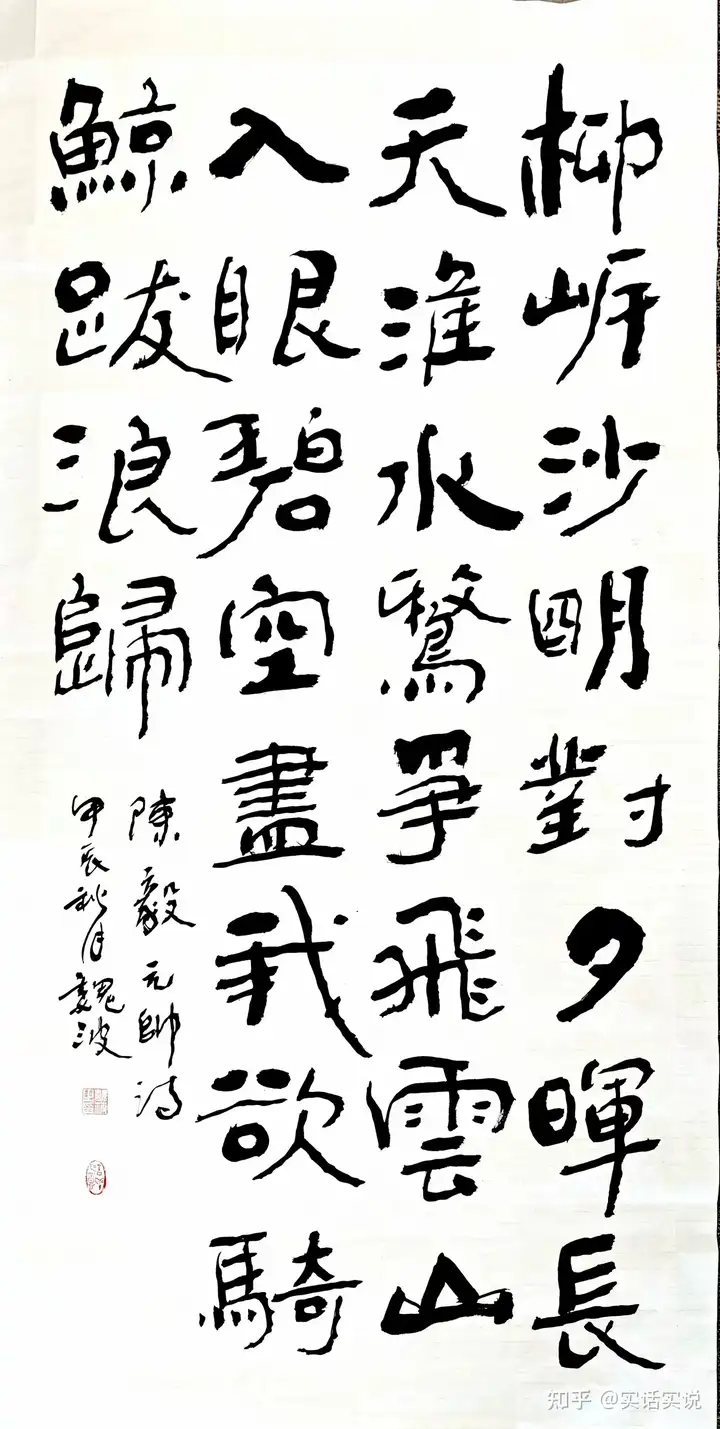 柳岸沙明對夕暉長
天淮水鶩爭飛雲山
入眼碧空盡我欲騎
鯨跋浪歸
陳毅元帥詩
甲辰秋月魏波
知乎 @实话实说